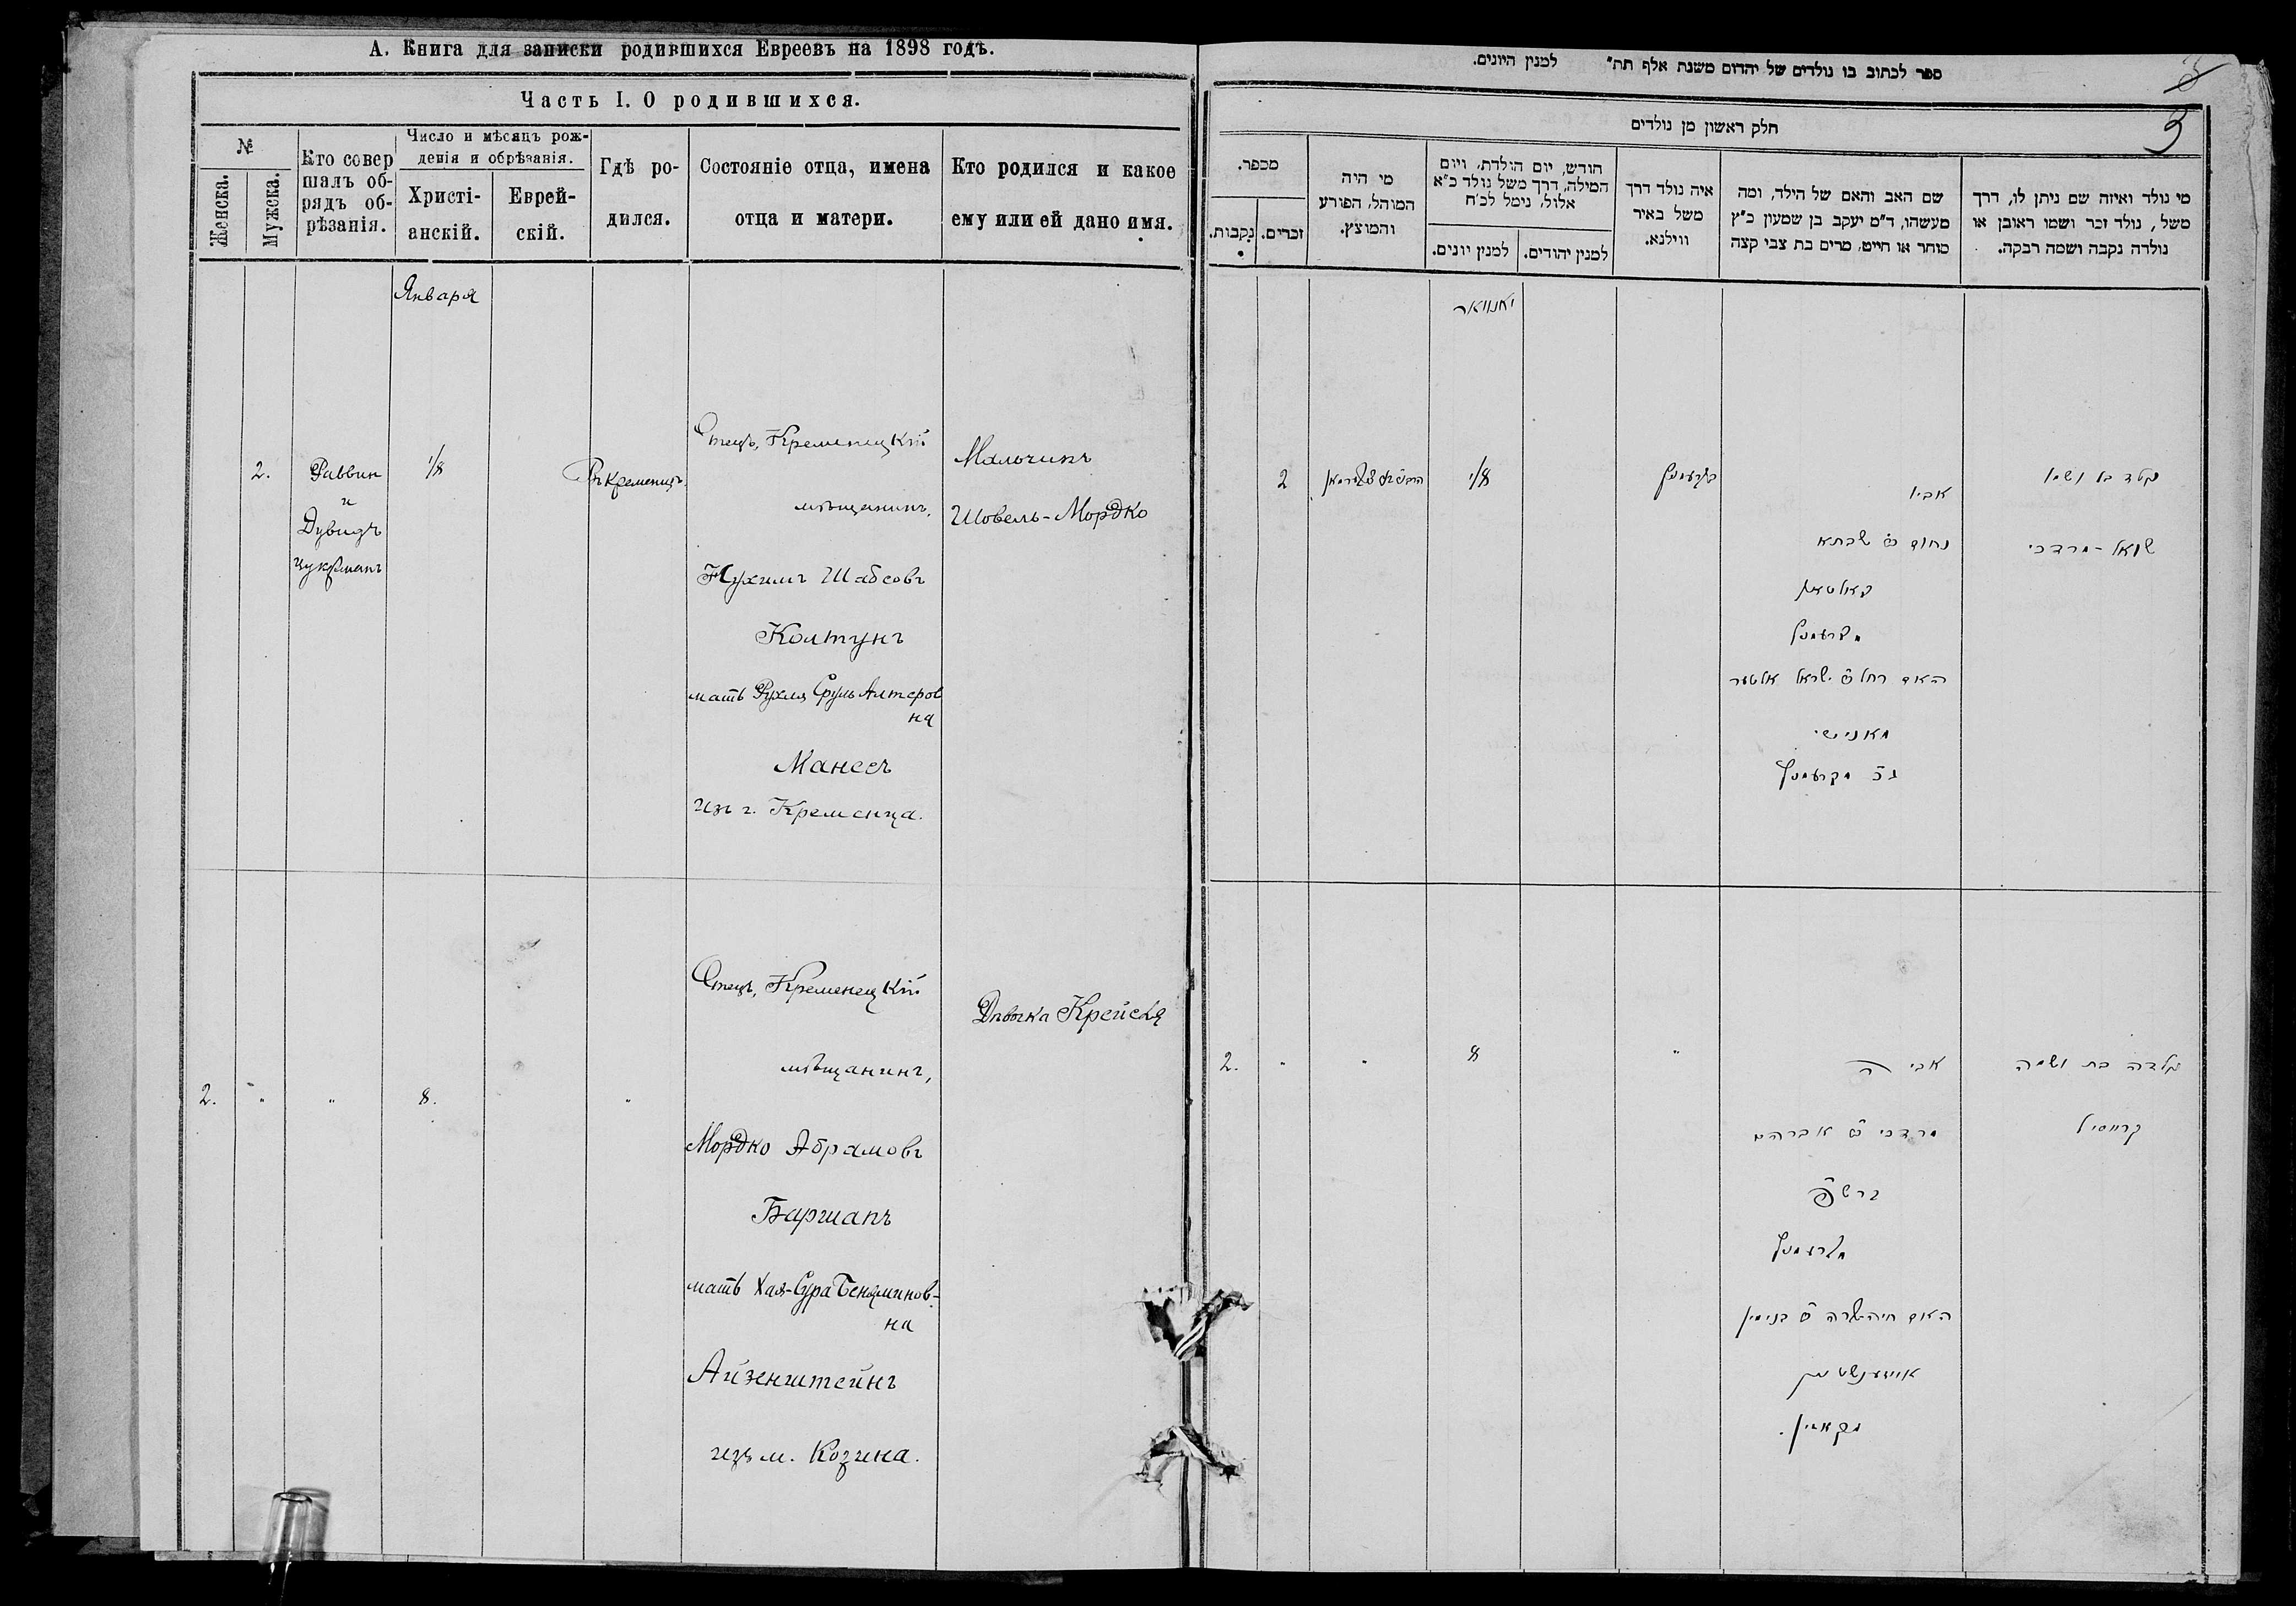 А. Книга для записки родившихся Евреевъ на 1898 годъ.
Часть I. О родившихся.
№
Женска.
Мужска.
Кто совер
шалъ об-
рядъ об-
рѣзанія.
Число и мѣсяцъ рож-
денія и обрѣзанія.
Христі-
анскій.
Еврей-
скій.
Гдѣ ро-
дился.
Состояніе отца, имена
отца и матери.
Кто родился и какое
ему или ей дано имя.
Января
2.
Раввин
и
Дувидъ
Цукрманъ
1/8
Въ Кременцѣ.
Отецъ, Кременецкій
мѣщанинъ,
Нухимъ Шабсовъ
Колтунъ
мать Рухля Сруль Алтеров
на
Манесъ
изъ г. Кременца.
Мальчикъ
Шовель-Мордко
2.
"
"
8.
"
Отецъ, Кременецкій
мѣщанинъ,
Мордко Абрамовъ
Баршапъ
мать Хая-Сура Беняминов-
на
Айзенштейнъ
изъ м. Козина.
Дѣвочка Крейсля
ספר לכתוב בו נולדים של יהדום משנת אלף תת" למנין היונים.
3
3
חלק ראשון מן נולדים
מספר.
נקבות.
זכרים.
מי היה
המוהל, הפורע
והמוצץ.
חודש, יום הולדת, ויום
המילה, דרך משל נולד כ"א
אלול, נימל לכ"ח
למנין יונים.
למנין יהודים.
איה נולד דרך
משל באיר
ווילנא.
שם האב והאם של הילד, ומה
מעשהו, ד"מ יעקב בן שמעון כ"ץ
סוחר או חייט, מרים בת צבי קצה
מי נולד ואיזה שם ניתן לו, דרך
משל, נולד זכר ושמו ראובן או
נולדה נקבה ושמה רבקה.
יאנוואר
2
1/8
בקרעמניץ
אביו
נחום ב"ר שבתא
קאלטון
מקרעמניץ
האם רחל ב"ר ישראל אלטער
מאניסי
מקרעמניץ
נולד בן ושמו
שואל-מרדכי
2.
"
"
8
"
אביה
מרדכי ב"ר אברהם
ברש"פ
מקרעמניץ
האם חיה שרה ב"ר בנימין
אייזענשטיין
מקאזין.
נולדה בת ושמה
קרייסיל